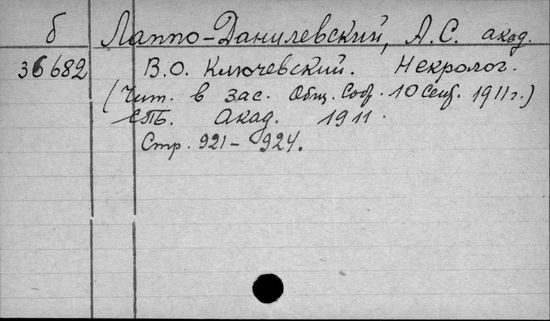 б Лаппо-Данилевский, А.С. акад.
36682 В.О. Ключевский. Некролог.
(Чит. в зас. Общ. Собр. 10 сент. 1911 г.)
СПБ. Акад. 1911.
Стр. 921-924.